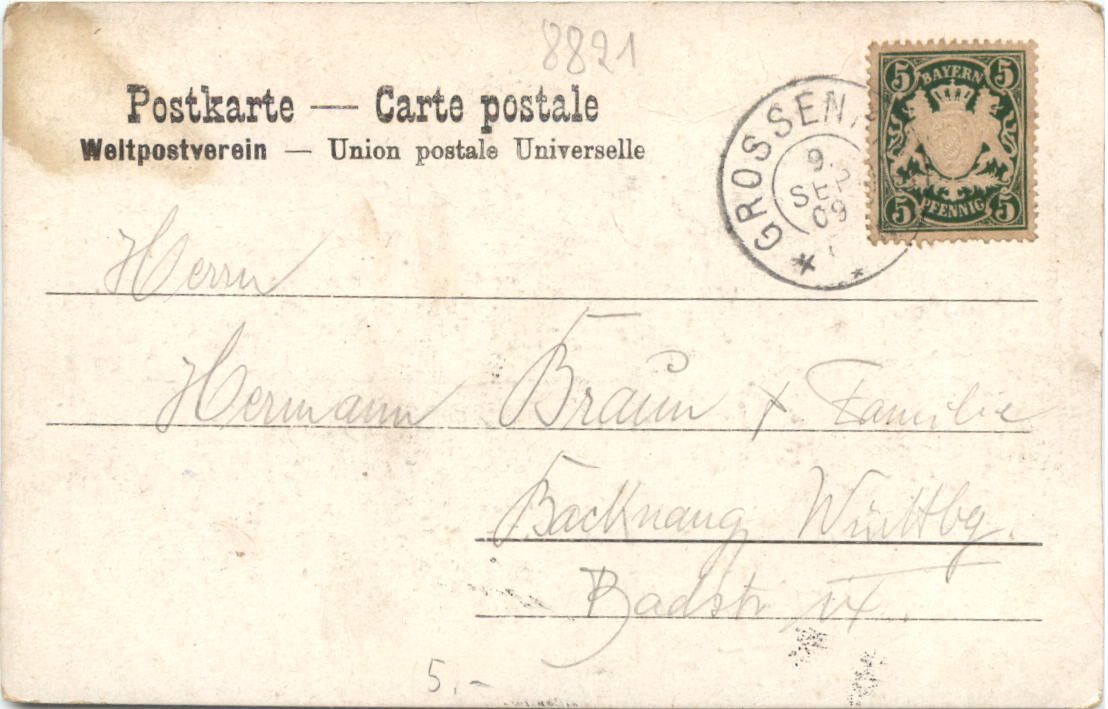 8821
Postkarte — Carte postale
Weltpostverein — Union postale Universelle
5 BAYERN 5
5 PFENNIG 5
GROSSEN
9.
SEP
09
Herrn
Hermann Braun & Familie
Backnang Württbg.
Badstr
5,-